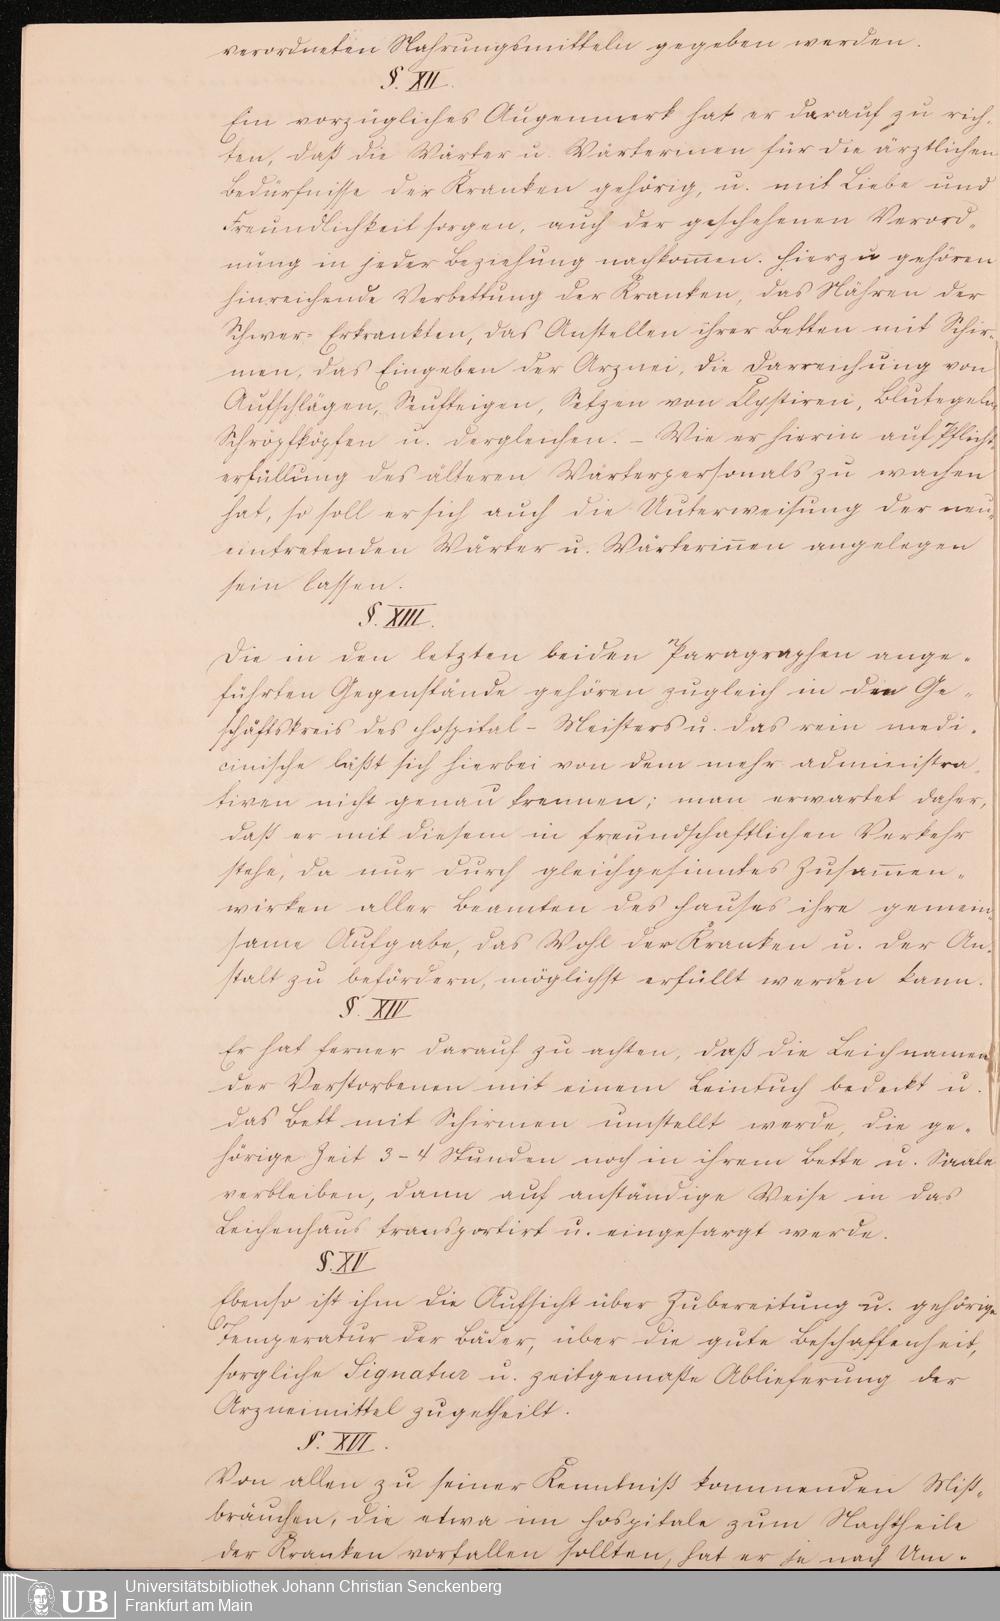 verordneten Nahrungsmitteln gegeben werden.
§. XII.
Ein vorzügliches Augenmerk hat er darauf zu rich-
ten, daß die Wärter u. Wärterinnen für die ärztlichen
Bedürfnisse der Kranken gehörig, u. mit Liebe und
Freundlichkeit sorgen, auch der geschehenen Verord-
nung in jeder Beziehung nachkom̄en. Hierzu gehören
hinreichende Verbettung der Kranken, das Nähren der
Schwer-Erkrankten, das Anstellen ihrer Betten mit Schir-
men, das Eingeben der Arznei, die Darreichung von
Aufschlägen, Senfteigen, Setzen von Clystiren, Blutegeln
Schröpfköpfen u. dergleichen. – Wie er hierin auf Pflicht
erfüllung des älteren Wärterpersonals zu wachen
hat, so soll er sich auch die Unterweisung der neu-
eintretenden Wärter u. Wärterin̄en angelegen
sein lassen.
§. XIII.
Die in den letzten beiden Paragraphen ange-
führten Gegenstände gehören zugleich in den Ge-
schäftskreis des Hospital-Meisters u. das rein medi-
cinische läßt sich hierbei von dem mehr administra-
tiven nicht genau trennen; man erwartet daher,
daß er mit diesem in freundschaftlichen Verkehr
stehe, da nur durch gleichgesinntes Zusam̄en-
wirken aller Beamten des Hauses ihre gemein-
same Aufgabe, das Wohl der Kranken u. der An-
stalt zu befördern, möglichst erfüllt werden kann.
§. XIV
Er hat ferner darauf zu achten, daß die Leichnamen
der Verstorbenen mit einem Leintuch bedeckt u.
das Bett mit Schirmen umstellt werde, die ge-
hörige Zeit 3-4 Stunden noch in ihrem Bette u. Saale
verbleiben, dann auf anständige Weise in das
Leichenhaus transportirt u. eingesargt werde.
§. XV
Ebenso ist ihm die Aufsicht über Zubereitung u. gehörige
Temperatur der Bäder, über die gute Beschaffenheit,
sorgliche Signatur u. zeitgemaße Ablieferung der
Arzneimittel zugetheilt.
§. XVI.
Von allen zu seiner Kenntniß kommenden Miß-
bräuchen, die etwa im Hospitale zum Nachtheile
der Kranken vorfallen sollten, hat er je nach Um-
UB
Universitätsbibliothek Johann Christian Senckenberg
Frankfurt am Main